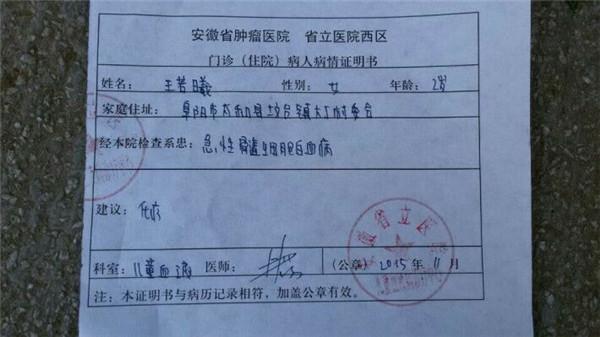 安徽省肿瘤医院 省立医院西区
门诊（住院）病人病情证明书
姓名： 王若曦 性别： 女 年龄： 2岁
家庭住址： 阜阳市太和县坟台镇大丁村委会
经本院检查系患： 急性髓细胞白血病
建议： 化疗
科室： 儿童血液 医师： （公章） 2015年11月
注：本证明书与病历记录相符，加盖公章有效。
徽省立医